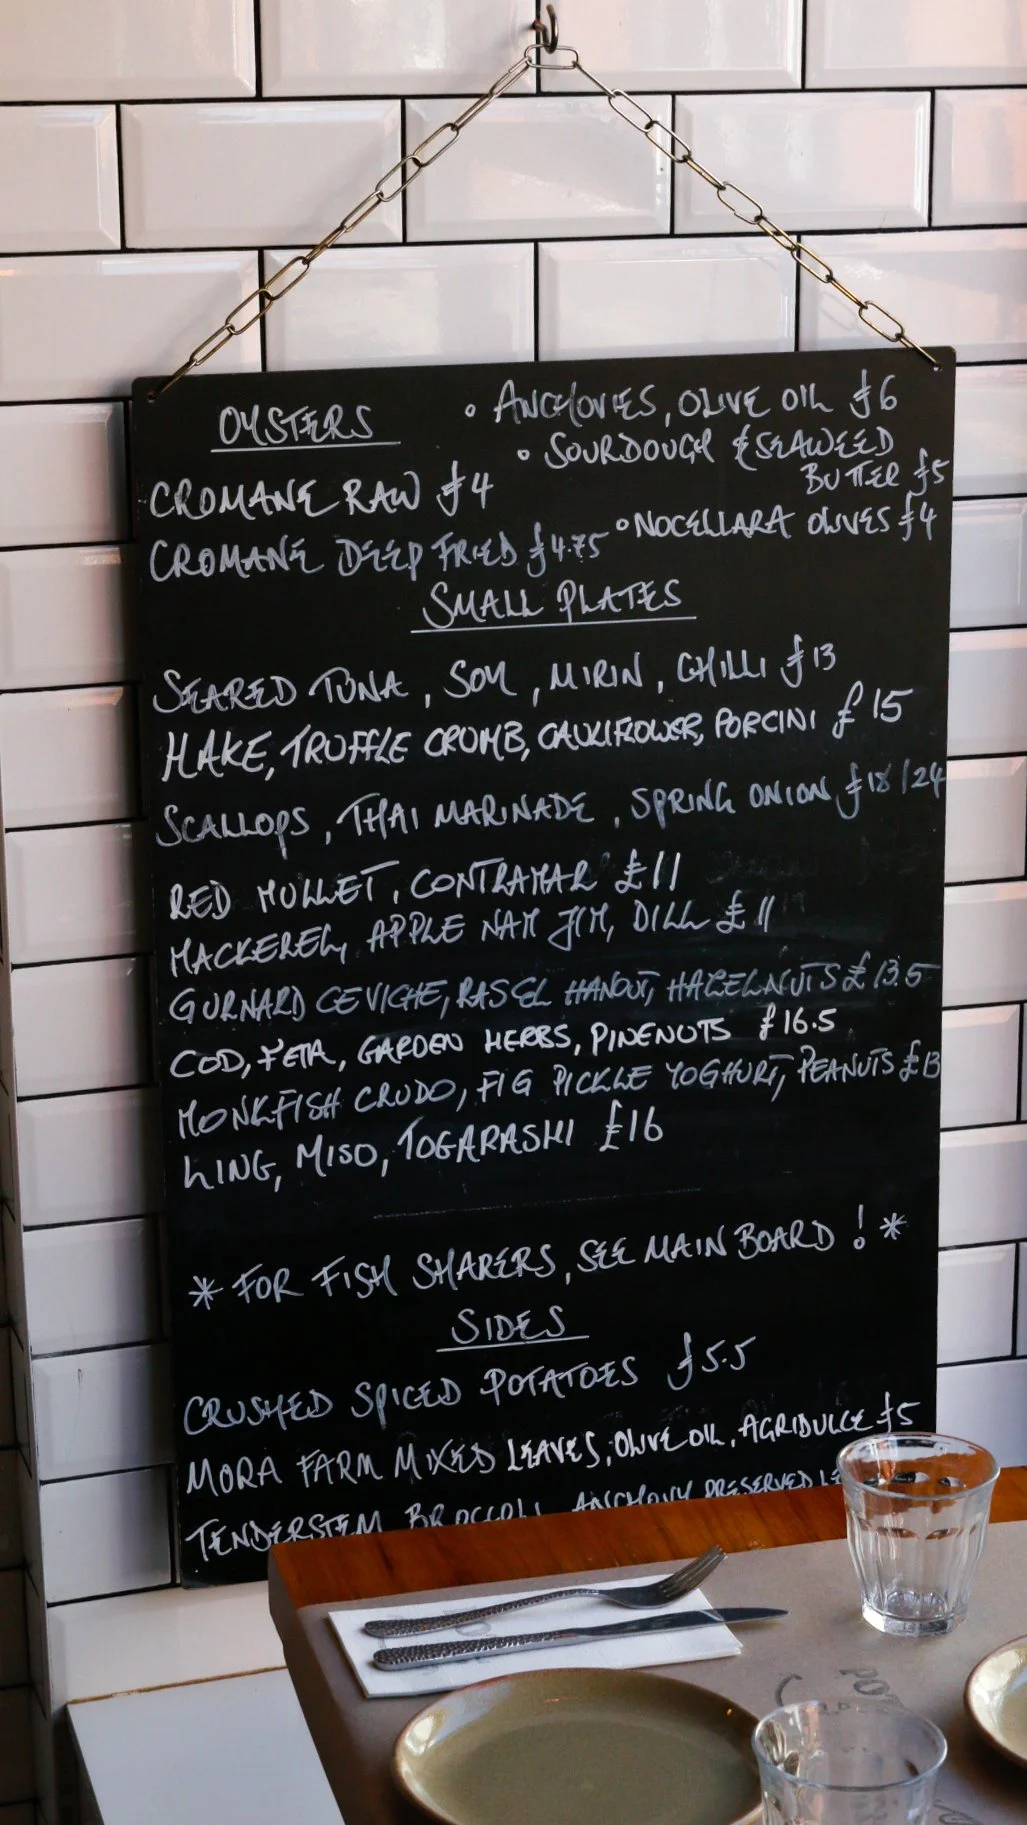 OYSTERS
CROMANE RAW £4
CROMANE DEEP FRIED £4.75
• ANCHOVIES, OLIVE OIL £6
• SOURDOUGH & SEAWEED
BUTTER £5
• NOCELLARA OLIVES £4
SMALL PLATES
SEARED TUNA, SOY, MIRIN, CHILLI £13
HAKE, TRUFFLE CRUMB, CAULIFLOWER, PORCINI £15
SCALLOPS, THAI MARINADE, SPRING ONION £18/24
RED MULLET, CONTRAMAR £11
MACKEREL, APPLE NAM JIM, DILL £11
GURNARD CEVICHE, RAS EL HANOUT, HAZELNUTS £13.5
COD, FETA, GARDEN HERBS, PINENUTS £16.5
MONKFISH CRUDO, FIG PICKLE YOGHURT, PEANUTS £13
LING, MISO, TOGARASHI £16
* FOR FISH SHARERS, SEE MAIN BOARD! *
SIDES
CRUSHED SPICED POTATOES £5.5
MORA FARM MIXED LEAVES, OLIVE OIL, AGRIDULCE £5
TENDERSTEM BROCCOLI, ANCHOVY PRESERVED